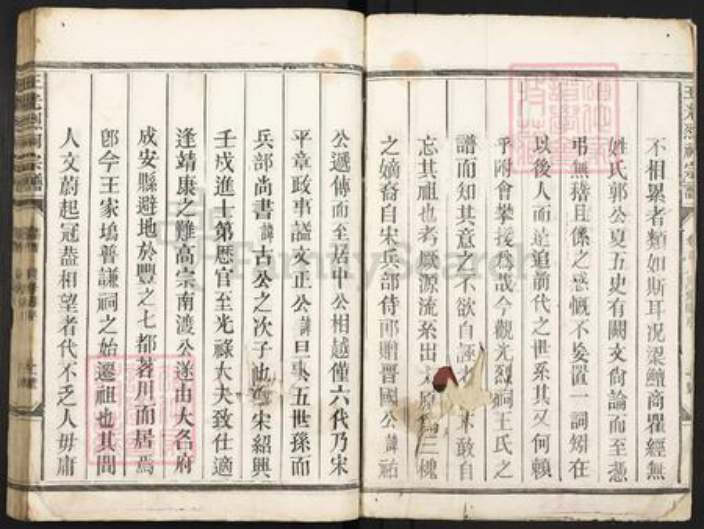 不相累者類如斯耳况梁鱣商瞿經無
姓氏郭公夏五史有闕文尙論而至憑
弔無稽且係之感慨不妄置一詞矧在
以後人而追前代之世系其又何賴
乎附會攀援爲哉今觀光烈祠王氏之
譜而知其意之不欲自誣者不敢自
忘其祖也考厥源流系出太原三槐
之嫡裔自宋兵部侍郎贈晋國公諱祐
公遞傳而至居中公相越僅六代乃宋
平章政事謚文正公諱旦五世孫而
兵部尚書諱古公之次子也宋紹興
壬戍進士第歷官至光祿大夫致仕適
逢靖康之難高宗南渡公遂由大名府
成安縣避地於豐之七都荖川而居焉
卽今王家塢普謙祠之始遷祖也其間
人文蔚起冠葢相望者代不乏人毋庸
王光烈祠宗譜
FamilySearch